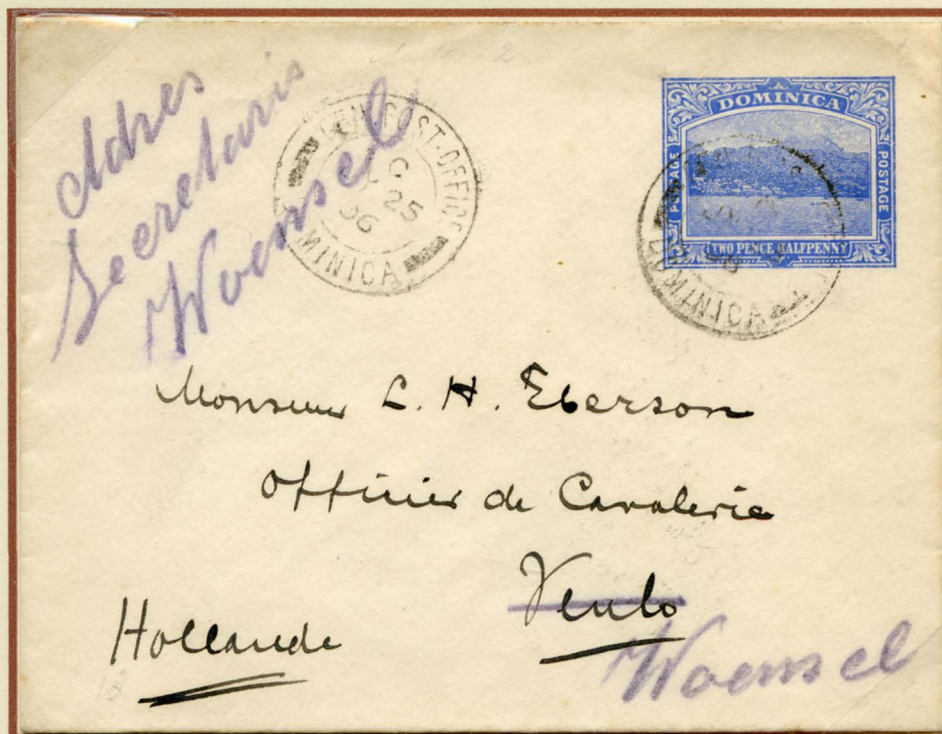 Adres
Secretaris
Woensel
GEN. POST-OFFICE
C
25
MINICA
DOMINICA
POSTAGE
POSTAGE
TWO PENCE HALFPENNY
DOMINICA
Monsieur L. H. Eberson
Officier de Cavalerie
Venlo
Hollande
Woensel